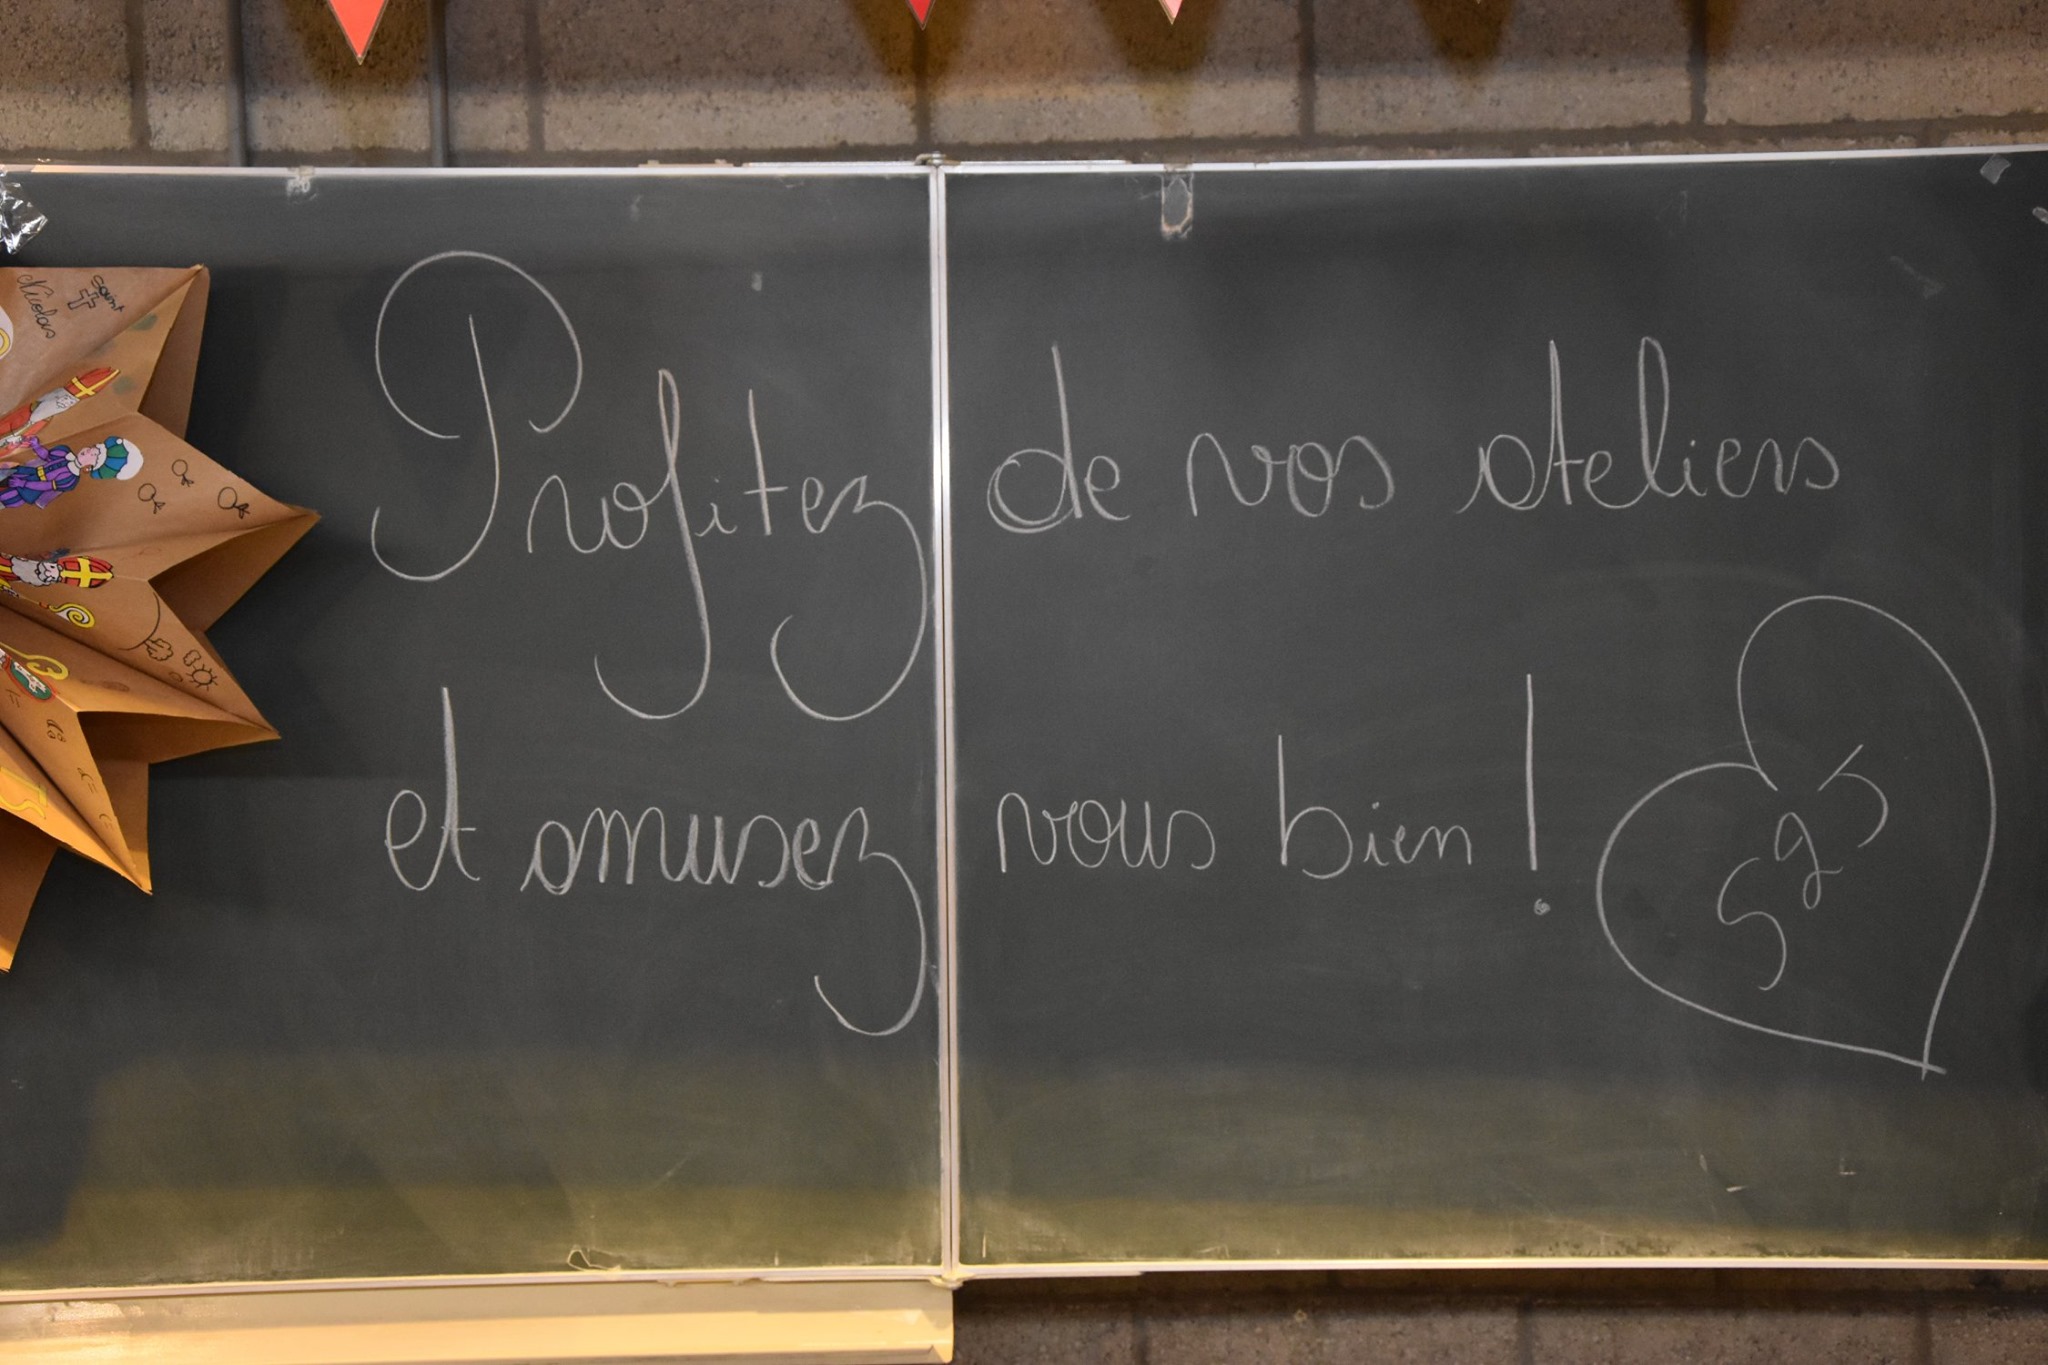 Saint
Nicolas
Profitez de vos ateliers
et amusez vous bien !